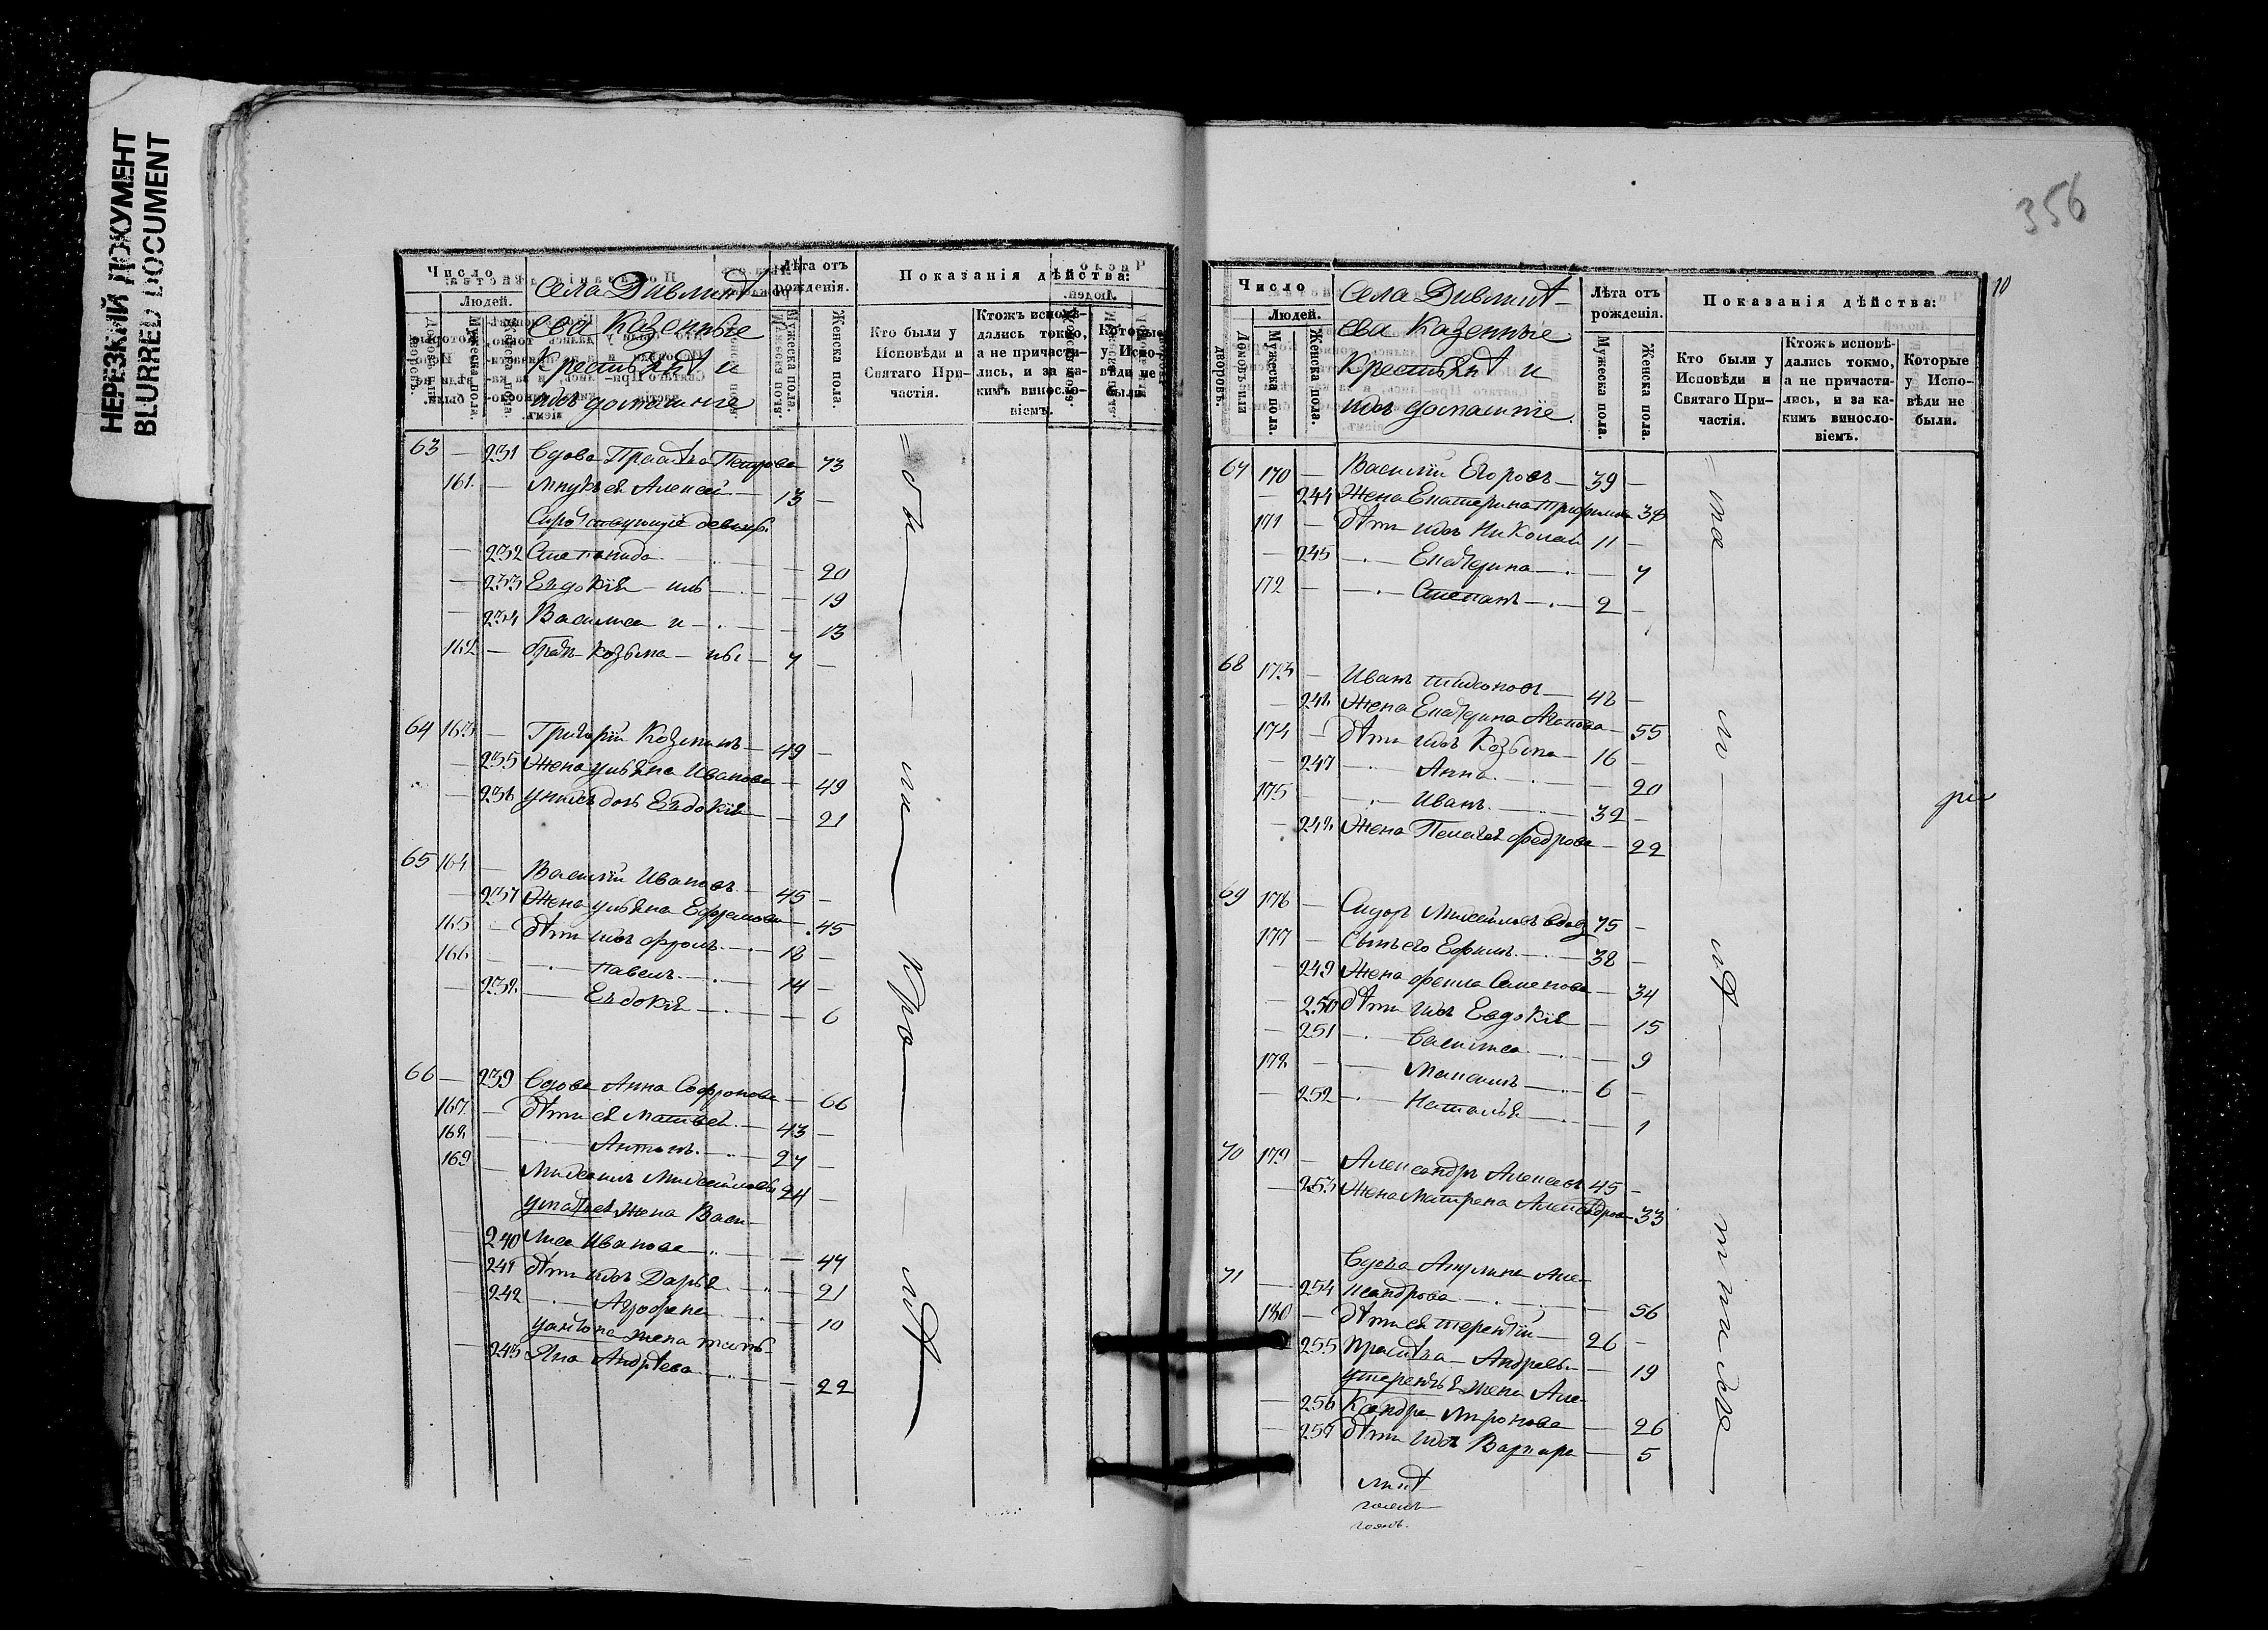 НЕРЕЗКИЙ ДОКУМЕНТ
BLURRED DOCUMENT
Число
Людей.
Домовъ или дворовъ.
Мужеска пола.
Женска пола.
Села
ева Казенные
Крестьяне и
ихъ домашніе
Лѣта отъ рожденія.
Мужеска пола.
Женска пола.
Показанія дѣйства:
Кто были у Исповѣди и Святаго Причастія.
Ктожъ исповѣдались токмо, а не причастились, и за какимъ винословіемъ.
Которые у Исповѣди не были.
63 — 231 Вдова Праск. Петрова — 73
161 — Внукъ ея Алексей — 13 —
— 232 Степанида — 20
— 233 Евдокія — 19
— 234 Василиса и — 13
162 — братъ Козьма — 7 —
64 163 — Григорій Козминъ — 49 —
— 235 Жена Ульяна Иванова — 49
— 236 у нихъ дочь Евдокія — 21
65 164 — Василій Ивановъ — 45 —
— 237 Жена Ульяна Ефремова — 45
165 — Дѣти ихъ Фролъ — 18 —
166 — Павелъ — 14 —
— 238 Евдокія — 6
66 — 239 Вдова Анна Софронова — 66
167 — Дѣти ея Матвей — 43 —
168 — Антонъ — 27 —
169 — Михаилъ Михайловъ 24 —
у Матвея жена Васи-
— 240 лиса Иванова — 44
— 241 Дѣти ихъ Дарья — 21
— 242 Агрофена — 10
у Антона жена Тать-
— 243 яна Андрѣева — 22
356
10
Число
Людей.
Домовъ или дворовъ.
Мужеска пола.
Женска пола.
Села
ева Казенные
Крестьяне и
ихъ домашніе
Лѣта отъ рожденія.
Мужеска пола.
Женска пола.
Показанія дѣйства:
Кто были у Исповѣди и Святаго Причастія.
Ктожъ исповѣдались токмо, а не причастились, и за какимъ винословіемъ.
Которые у Исповѣди не были.
67 170 — Василій Егоровъ — 39 —
— 244 Жена Екатерина Трофимова 38
171 — Дѣти ихъ Николай 11 —
— 245 Екатерина — 7
172 — Степанъ — 2 —
68 173 — Иванъ — 48 —
— 246 Жена Екатерина — 55
174 — Дѣти ихъ Козьма — 16 —
— 247 Анна — 20
175 — Иванъ — 32 —
— 248 Жена Пелагея Федрова — 22
69 176 — Сидоръ Михайловъ вдов 75 —
177 — Сынъ его Ефимъ — 38 —
— 249 Жена Фекла Семенова — 34
— 250 Дѣти ихъ Евдокія — 15
— 251 Василиса — 9
178 — Максимъ — 6 —
— 252 Наталья — 1
70 179 — Александръ Алексевъ 45 —
— 253 Жена Матрена Александрова 33
Вдова Акулина Але-
71 — 254 ксандрова — 56
180 — Дѣти ея Терентій — 26 —
— 255 Андрев. — 19
у Терентья жена Але-
— 256 ксандра Миронова — 26
— 257 Дѣти ихъ Варвара — 5